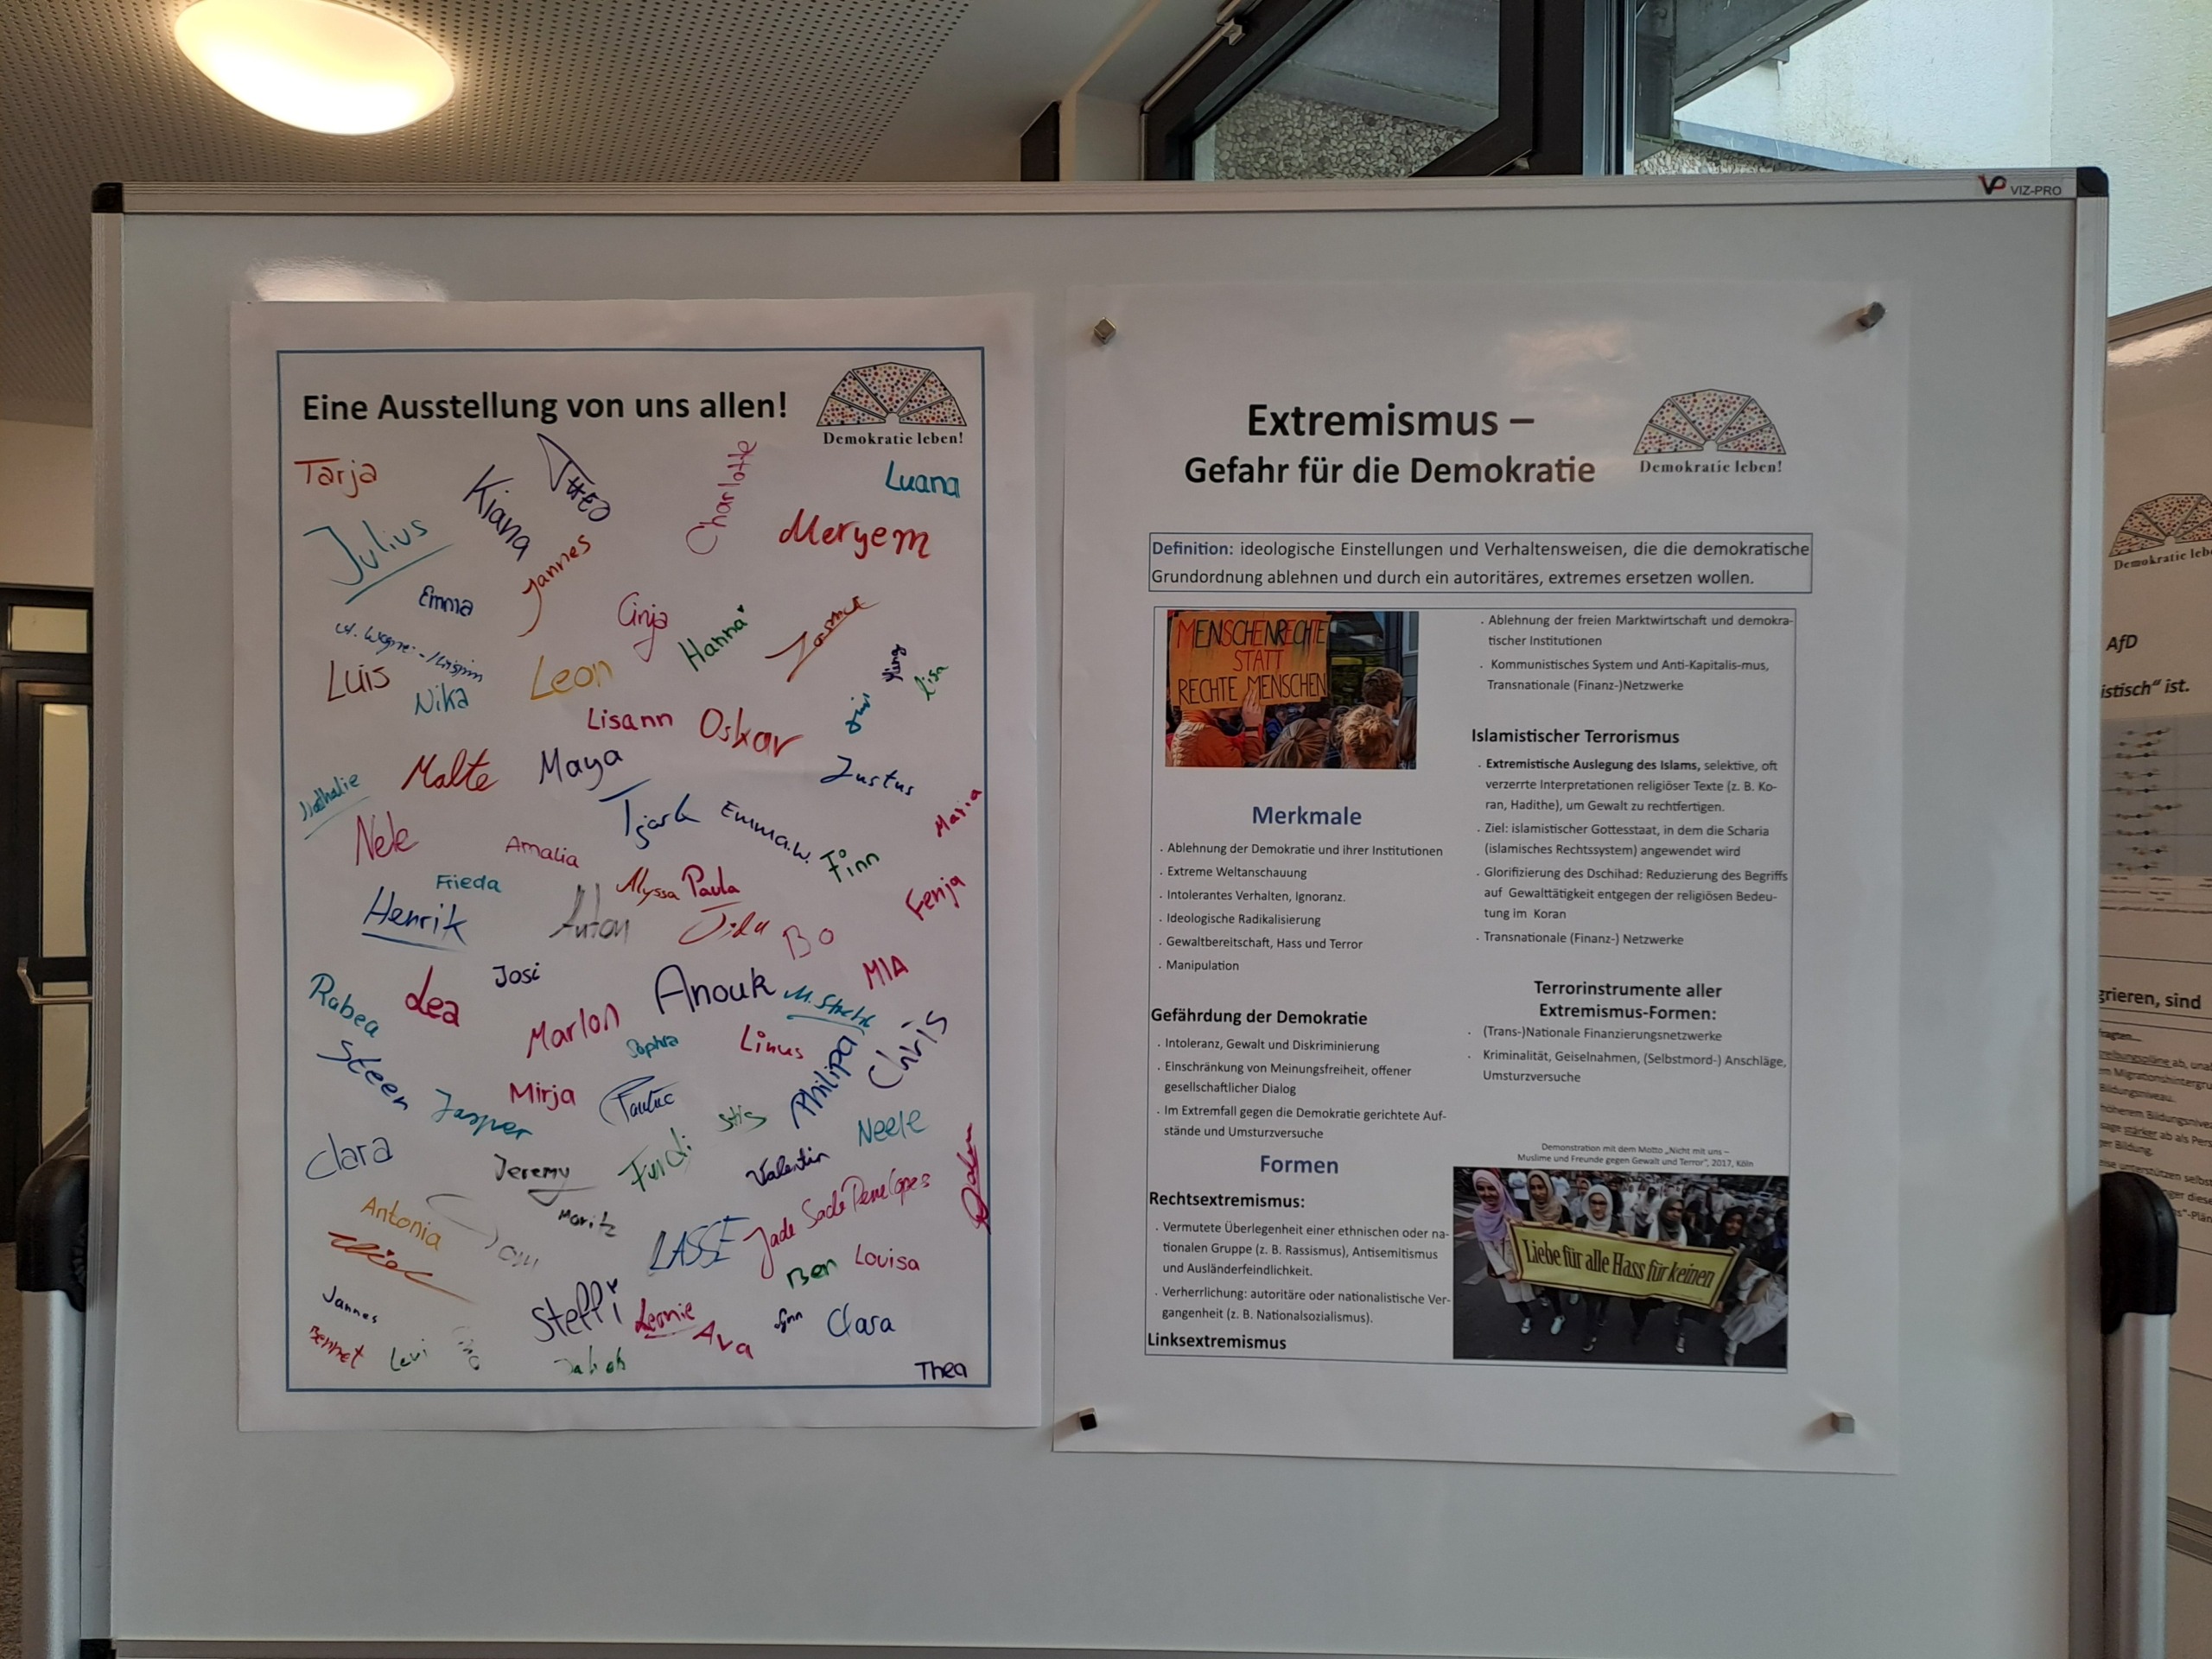 VIZ-PRO
Eine Ausstellung von uns allen!
Demokratie leben!
Tarja
Kiana
Theo
Charlotte
Luana
Julius
Jannes
Meryem
Emma
Cinja
Hanna
Luis
Nika
Leon
Lisa
Lisann
Oskar
Nathalie
Malte
Maya
Justus
Tjark
Emma.W.
Maria
Nele
Amalia
Finn
Frieda
Alyssa
Paula
Fenja
Henrik
Anton
Bo
Josi
MIA
Rabea
Lea
Anouk
Marlon
Sophia
Linus
Chris
Steen
Mirja
Philipa
Jasper
Neele
Clara
Jeremy
Valentin
Antonia
Moritz
Jade Sade Penelopes
LASSE
Ben
Louisa
Jannes
Steffi
Leonie
Ava
Clara
Bennet
Levi
Jakob
Thea
Extremismus –
Gefahr für die Demokratie
Demokratie leben!
Definition: ideologische Einstellungen und Verhaltensweisen, die die demokratische
Grundordnung ablehnen und durch ein autoritäres, extremes ersetzen wollen.
MENSCHENRECHTE
STATT
RECHTE MENSCHEN
Merkmale
. Ablehnung der Demokratie und ihrer Institutionen
. Extreme Weltanschauung
. Intolerantes Verhalten, Ignoranz.
. Ideologische Radikalisierung
. Gewaltbereitschaft, Hass und Terror
. Manipulation
Gefährdung der Demokratie
. Intoleranz, Gewalt und Diskriminierung
. Einschränkung von Meinungsfreiheit, offener
gesellschaftlicher Dialog
. Im Extremfall gegen die Demokratie gerichtete Auf-
stände und Umsturzversuche
Formen
Rechtsextremismus:
. Vermutete Überlegenheit einer ethnischen oder na-
tionalen Gruppe (z. B. Rassismus), Antisemitismus
und Ausländerfeindlichkeit.
. Verherrlichung: autoritäre oder nationalistische Ver-
gangenheit (z. B. Nationalsozialismus).
Linksextremismus
. Ablehnung der freien Marktwirtschaft und demokra-
tischer Institutionen
. Kommunistisches System und Anti-Kapitalis-mus,
Transnationale (Finanz-)Netzwerke
Islamistischer Terrorismus
. Extremistische Auslegung des Islams, selektive, oft
verzerrte Interpretationen religiöser Texte (z. B. Ko-
ran, Hadithe), um Gewalt zu rechtfertigen.
. Ziel: islamistischer Gottesstaat, in dem die Scharia
(islamisches Rechtssystem) angewendet wird
. Glorifizierung des Dschihad: Reduzierung des Begriffs
auf Gewalttätigkeit entgegen der religiösen Bedeu-
tung im Koran
. Transnationale (Finanz-) Netzwerke
Terrorinstrumente aller
Extremismus-Formen:
. (Trans-)Nationale Finanzierungsnetzwerke
. Kriminalität, Geiselnahmen, (Selbstmord-) Anschläge,
Umsturzversuche
Demonstration mit dem Motto „Nicht mit uns –
Muslime und Freunde gegen Gewalt und Terror", 2017, Köln
Liebe für alle Hass für keinen
Demokratie leb
AfD
istisch" ist.
grieren, sind